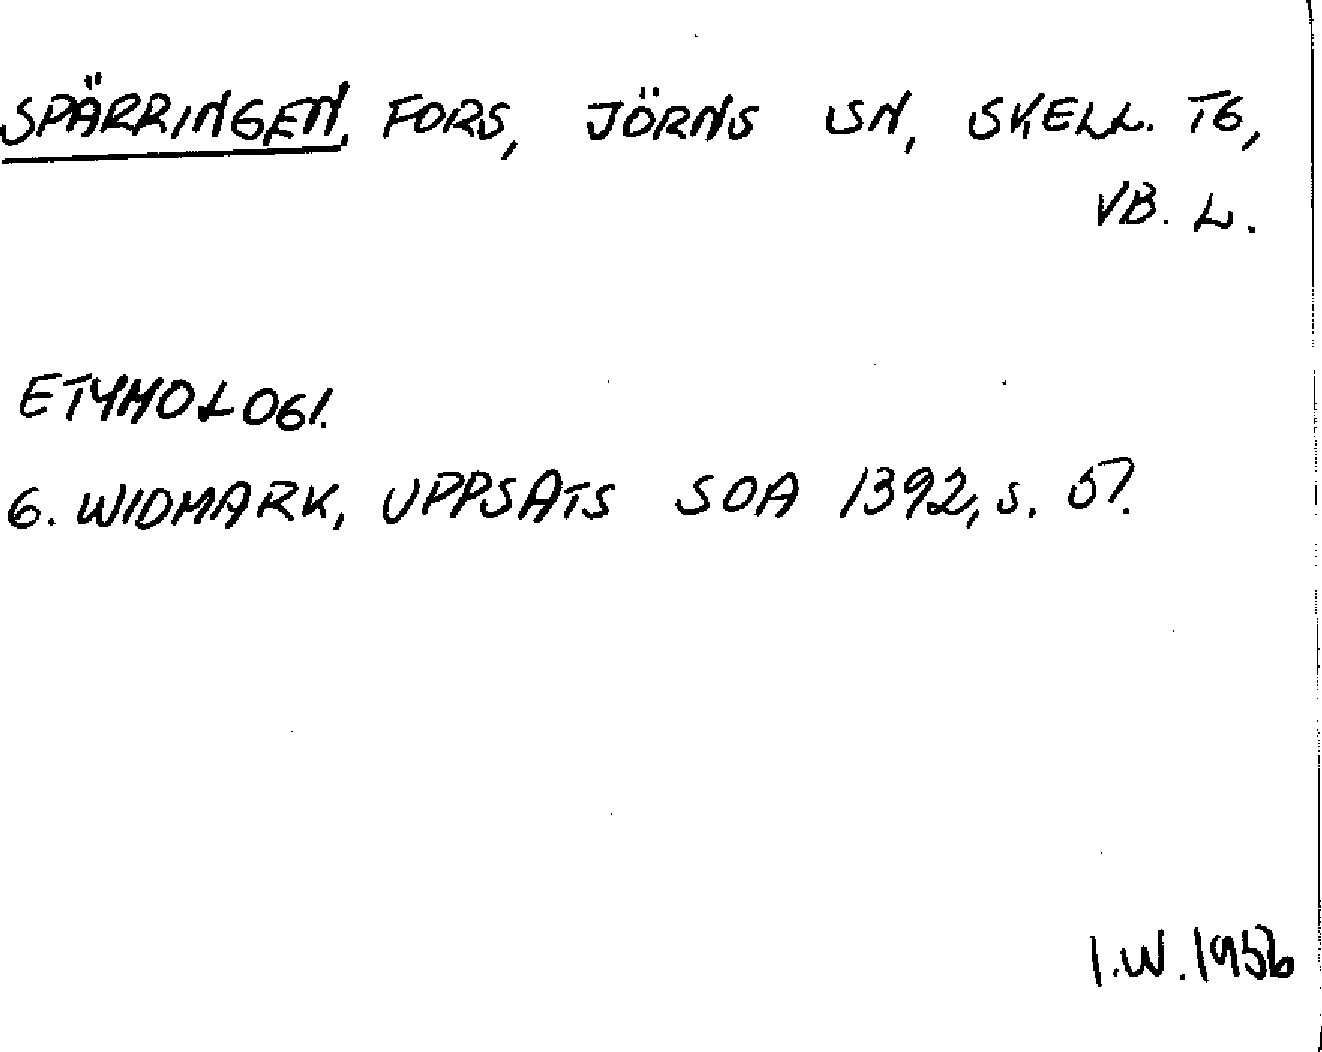 SPÄRRINGEN, FORS, JÖRNS SN, SKELL. TG,
VB. L.
ETYMOLOGI.
G. WIDMARK, UPPSATS SOA 1392, S. 57.
I.W. 1956